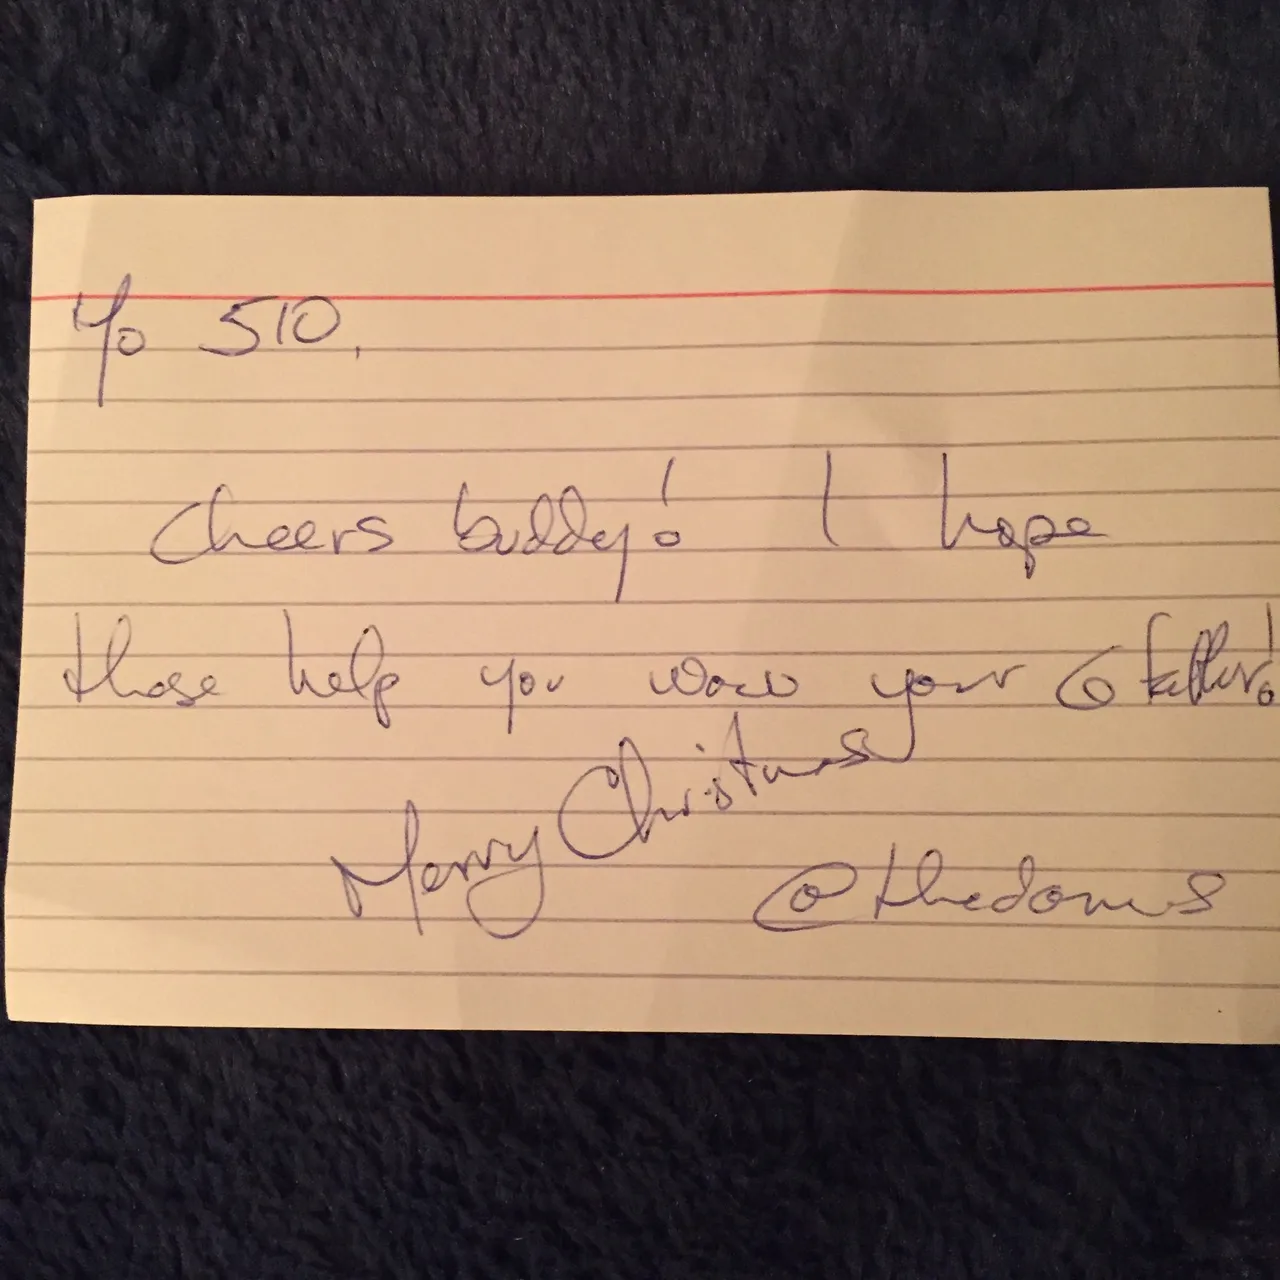 Yo 510,
Cheers buddy! I hope
those help you wow your G father!
Merry Christmas
@thedomis